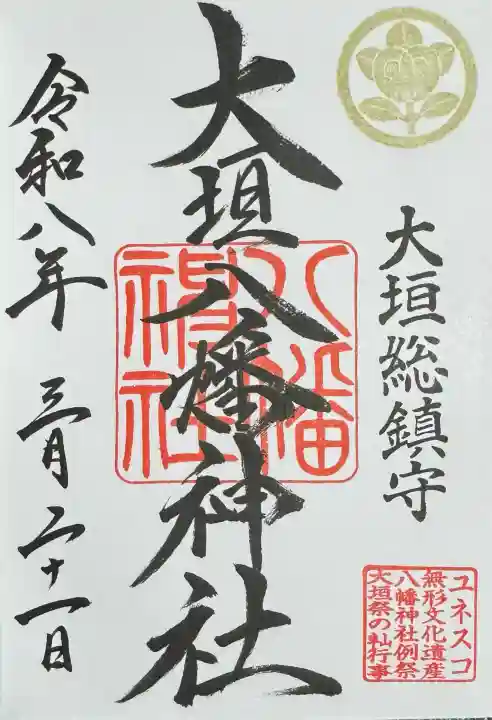 大垣総鎮守
ユネスコ
無形文化遺産
八幡神社例祭
大垣祭の軕行事
大垣八幡神社
八幡
神社
令和八年 三月二十一日